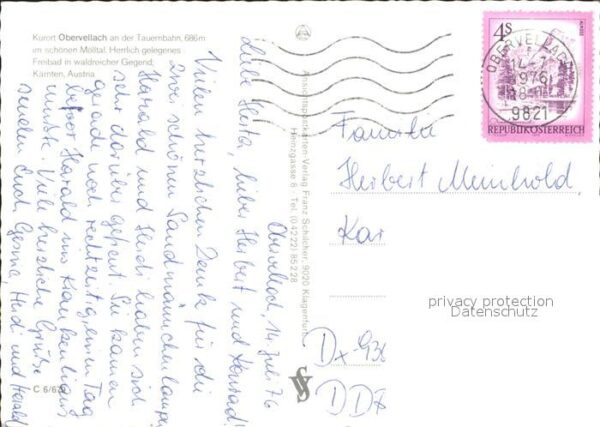 Kurort Obervellach an der Tauernbahn, 686m
im schönen Mölltal. Herrlich gelegenes
Freibad in waldreicher Gegend;
Kärnten, Austria
Obervellach, 14. Juli 76
Liebe Herta, lieber Herbert und Konrad!
Vielen herzlichen Dank für die
zwei schönen Sandmännchenlampen.
Harald und Heidi haben sich
sehr darüber gefreut. Sie kamen
gerade noch rechtzeitig einen Tag
bevor Harald ins Krankenhaus
mußte. Viele herzliche Grüße
senden Euch Heidi und Harald
C 6/67
Ansichtspostkarten-Verlag Franz Schilcher, 9020 Klagenfurt
Heinzgasse 6 Tel. (0 42 22) 85 2 28
4S
OBERVELLACH
14.-7.
1976
18
9821
REPUBLIK ÖSTERREICH
Familie
Herbert Meinhold
Kar
privacy protection
Datenschutz